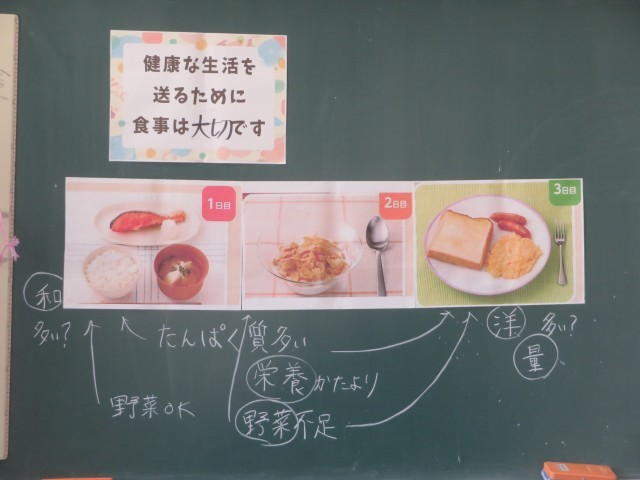 健康な生活を
送るために
食事は大切です
1日目
2日目
3日目
和
多い?
たんぱく質多い
洋 多い?
量
栄養かたより
野菜OK
野菜不足